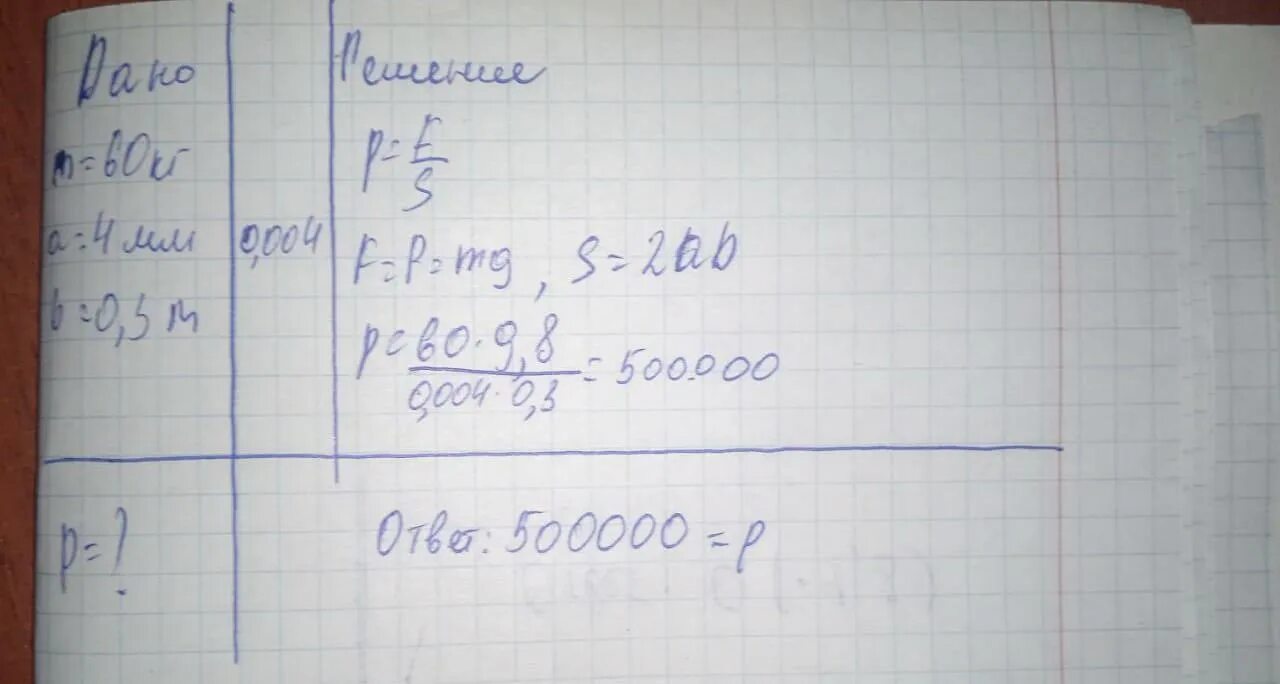 Дано
m=60кг
a=4мм
0,004
b=0,3 m
Решение
p=F/S
F=P=mg, S=2ab
p=60·9,8/0,004·0,3=500.000
p=?
Ответ: 500000=p